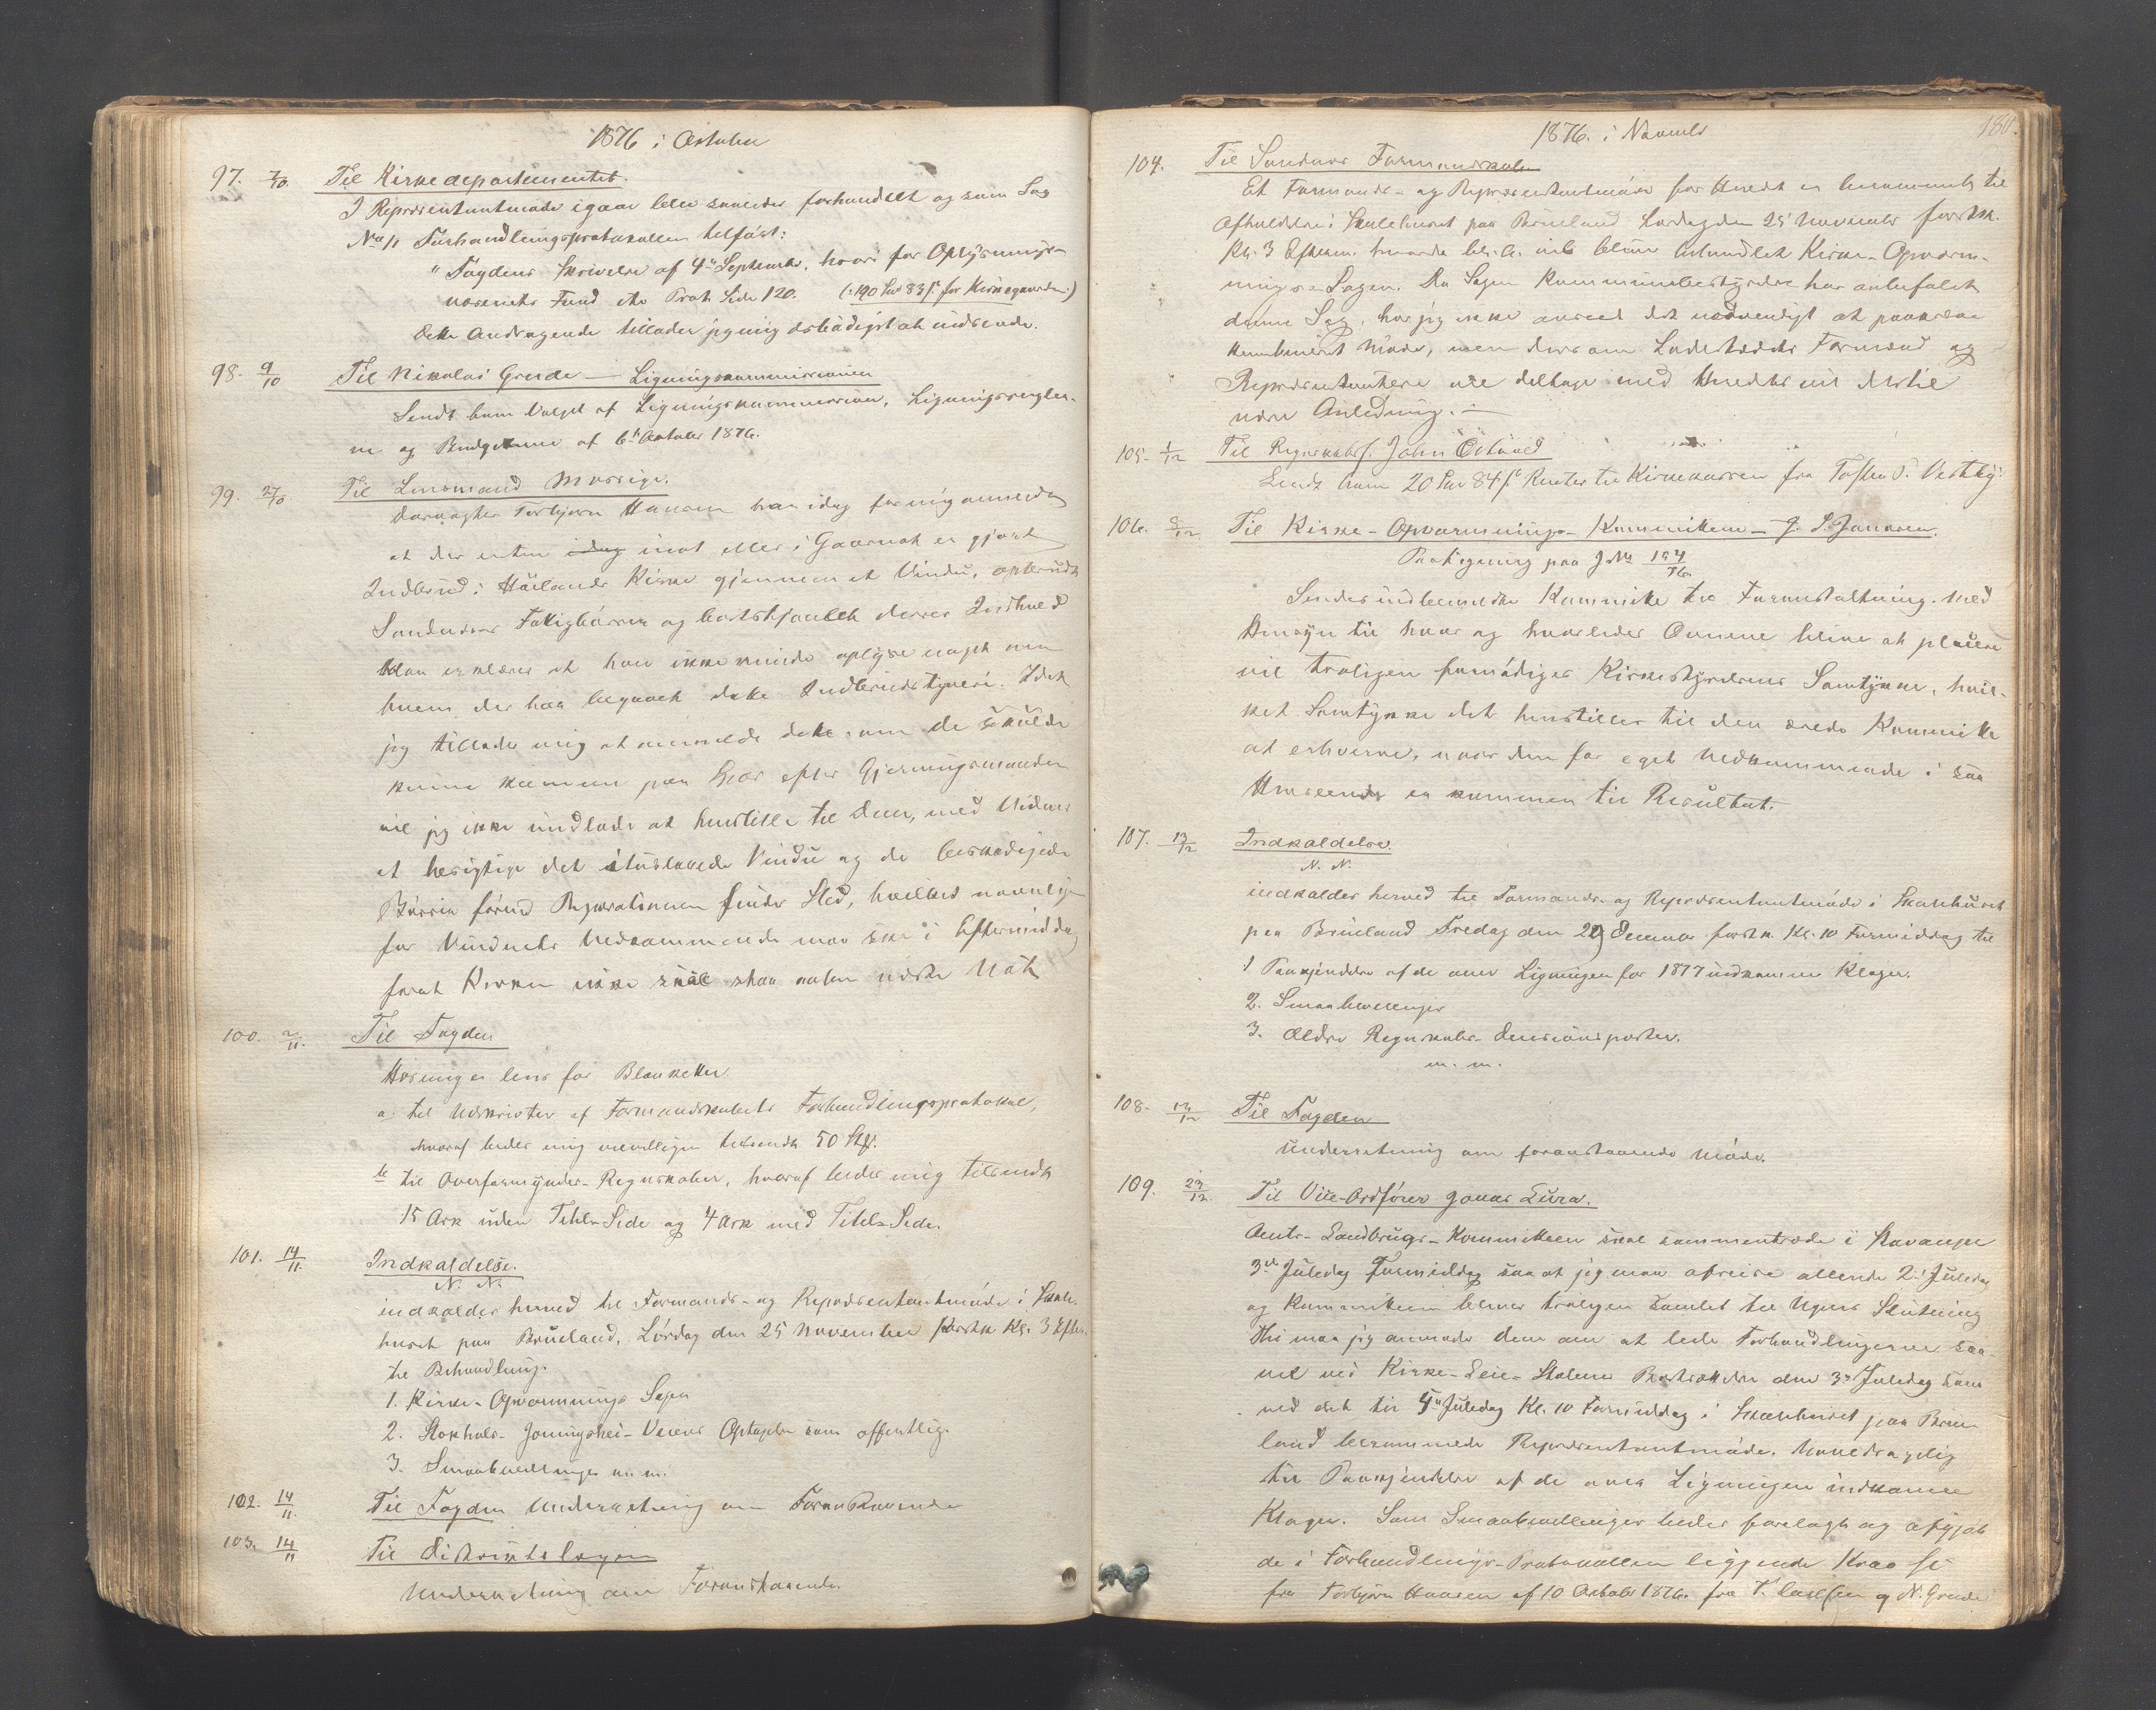 1876 i October
97. 7/10. Til Kirkedepartementet.
I Repræsentantmøde igaar blev saaledes forhandlet og som Sag
No 11 Forhandlingsprotokollen tilført:
"Fogdens Skrivelse af 4de September, hvori for Oplysnings-
væsenets Fond etc Prot. Side 120. (:190 Spd 83 ſ. for Kirkegaarden:)
Dette Andragende tillader jeg mig ærbødigst at indsende.
98. 9/10 Til Nikolai Grude — Ligningskommissionen
Sendt ham Valget af Ligningskommission, Ligningsregler-
ne og Budgetterne af 6te October 1876.
99. 27/10. Til Lensmand Mossige.
Torbjørn Hansen har idag for mig anmeldt
at der enten idag inat eller i Gaarnat er gjort
Indbrud i Høilands Kirke gjennem et Vindu, opbrudt
Sandnæs Fattigbøsser og bortstjaalet deres Indhold
Han erklærer at han ikke kunde oplyse noget om
hvem der har begaaet dette Indbrudstyveri. Idet
jeg tillader mig at anmelde dette, om de skulde
kunne komme paa Spor efter Gjerningsmanden
vil jeg ikke undlade at henstille til Dem, med Vidner
at besigtige det ituslagede Vindu og de beskadigede
Bøsser førend Reparationen finder Sted, hvilket navnlig
for Vinduets Vedkommende maa ske i Eftermiddag
forat Kirken ikke skal staa aaben næste Nat
100. 2/11. Til Fogden
Herning er lens for Blanketter
a. til Udskrifter af Formandskabets Forhandlingsprotokol,
hvoraf bedes mig velvilligen tilsendt 50 Stk.
b til Overformynder-Regnskaber, hvoraf bedes mig tilsendt
15 Ark uden Titel-Side og 4 Ark med Titel-Side.
101. 14/11. Indkaldelse.
N. N.
indkaldes herved til Formands- og Repræsentantmøde i Skole-
huset paa Brueland, Lørdag den 25 November førstk Kl. 3 Efterm.
til Behandling.
1. Kirke-Opvarmnings Sagen
2. Veiens Optagelse som offentlig.
3. Smaabevillinger m. m.
102. 14/11. Til Fogden Underretning om Foranstaaende
103. 14/11 Til Distriktslægen
Underretning om Foranstaaende.
1876. i Novembr
180.
104. Til Sandnæs Formandskab
Et Formands- og Repræsentantmøde for Heredet er berammet til
Afholdelse i Skolehuset paa Brueland Lørdag den 25 November førstk.
Kl. 3 Efterm. hvorda bl. A. vil blive behandlet Kirke-Opvarm-
nings-Sagen. Da Sogne Kommunebestyrelse har anbefalet
denne Sag, har jeg ikke anseet det nødvendigt at paakræve
kombineret Møde, men dersom Ladestedets Formænd og
Repræsentantere ville deltage med Heredets vil dertil
være Anledning. —
105. 1/12 Til Regnskabsf. John Østvold
Sendt ham 20 Spd 84 ſ. Renter til Kirkekassen fra Tosten T. Vestby.
106. 8/12 Til Kirke-Opvarmnings-Kommitteen — J. S. Jonasen.
Paategning paa J No 104/76.
Sendes indbemeldte Kommitte til Foranstaltning. Med
Hensyn til hvor og hvorledes Ovnene blive at placere
vil troligen fornødiges Kirkestyrelsens Samtykke, hvil-
ket Samtykke det henstilles til den ærede Kommitte
at erhverve, naar den for eget Vedkommende i saa
Henseende er kommen til Resultat.
107. 13/12 Indkaldelse.
N. N.
indkaldes herved til Formands- og Repræsentantmøde i Skolehuset
paa Brueland Fredag den 29 Decembr førstk. Kl. 10 Formiddag til
1 Paakjendelse af de over Ligningen for 1877 indkomne Klager.
2. Smaabevillinger
3. Ældre Regnskabs-Decisionsposter.
m. m.
108. 13/12 Til Fogden
Underretning om foranstaaende Møde.
109. 23/12. Til Vice-Ordfører Jonas Lura.
Amts-Landbrugs-Kommitteen skal sammentræde i Stavanger
3die Juledag Formiddag saa at jeg maa afreise allerede 2den Juledag
og Kommitteen bliver troligen samlet til Ugens Slutning
Thi maa jeg anmode Dem om at lede Forhandlingerne saa-
vel ved Kirke-Leie-Stolenes Bortsættelse den 3die Juledag som
ved det til 5te Juledag Kl. 10 Formiddag i Skolehuset paa Brue-
land berammede Repræsentantmøde. Hovedsagelig
til Paakjendelse af de over Ligningen indkomne
Klager. Som Smaabevillinger bedes forelagt og afgjort
de i Forhandlings-Protokollen liggende Krav se
fra Torbjørn Hansen af 10 October 1876. fra T. Carlsen og N. Grude